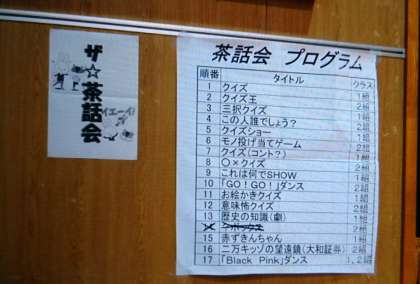 ザ☆茶話会
イエーイ!
茶話会 プログラム
順番 タイトル クラス
1 クイズ 1組
2 クイズ王 2組
3 三択クイズ 2組
4 この人誰でしょう? 2組
5 クイズショー 1組
6 モノ投げ当てゲーム 2組
7 クイズ(コント?) 1組
8 〇×クイズ 2組
9 これは何でSHOW 1組
10 「GO!GO!」ダンス 2組
11 お絵かきクイズ 1組
12 意味怖クイズ 2組
13 歴史の知識(劇) 1組
15 赤ずきんちゃん 1組
16 二万キッゾの望遠鏡(大和証券) 2組
17 「Black Pink」ダンス 1,2組